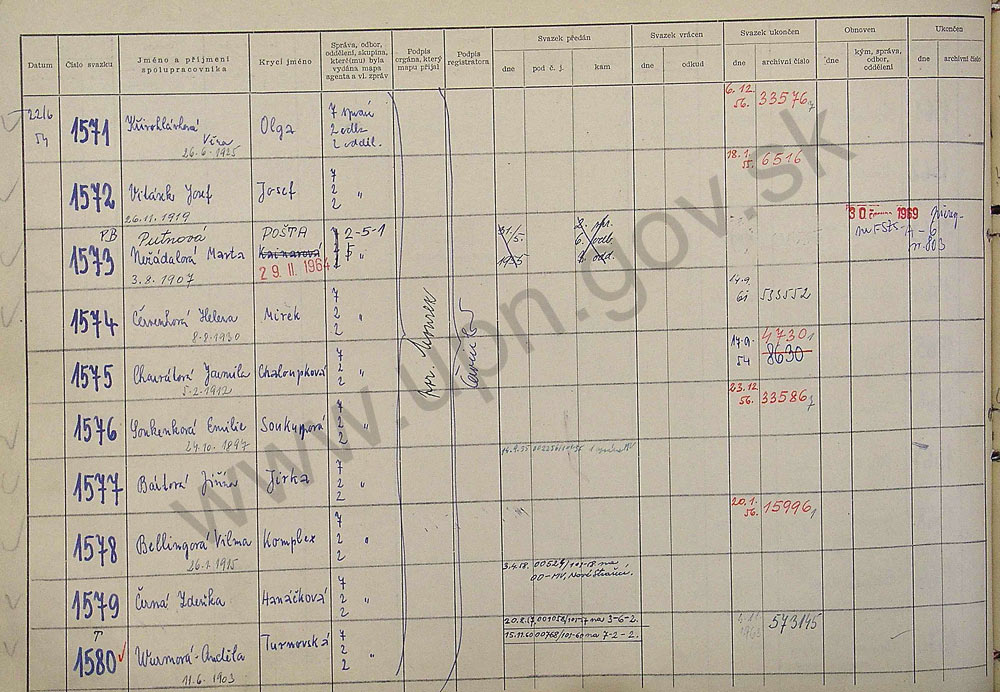 Datum
Číslo svazku
Jméno a příjmení
spolupracovníka
Krycí jméno
Správa, odbor,
oddělení, skupina,
které(mu) byla
vydána mapa
agenta a vl. zpráv
Podpis
orgána, který
mapu přijal
Podpis
registratora
Svazek předán
dne
pod č. j.
kam
Svazek vrácen
dne
odkud
Svazek ukončen
dne
archivní číslo
Obnoven
dne
kým, správa,
odbor,
oddělení
Ukončen
dne
archivní číslo
22/6
54
1571
Křivohlávková
Věra
26.6.1925
Olga
7 správ
2 odb.
2 odděl.
6.12.
56.
33576
1572
Vitásek Josef
26.11.1919
Josef
7
2 "
2
18.1.
55.
6516
PB
1573
Putnová
Neřádalová Marta
3.8.1907
POŠTA
Kainarová
29. II. 1964
2-5-1
31/5.
2. spr.
6. odb.
odd.
30 1969
A-6
803
1574
Červenková Helena
8.8.1930
Mirek
7
2 "
2
14.9.
61
533552
1575
Chaurátová Jarmila
5.2.1912
Chaloupková
7
2 "
2
17.9.
54
4730
8630
1576
Soukenková Emilie
24.10.1897
Soukupová
7
2 "
2
23.12.
56.
33586
1577
Bártová Jiřina
Jirka
7
2 "
2
1578
Bellingová Vilma
26.1.1915
Komplex
7
2 "
2
20.1.
56.
15996
1579
Černá Zdeňka
Hanáčková
7
2 "
2
3.4.58. 00524/101-58 na
OO-MV, Nové Strašecí.
T
1580
Wurmová Anděla
11.6.1903
Turnovská
7
2 "
2
001058/101-57 na 3-6-2.
15.11.60 00768/101-60 na 7-2-2.
573195
www.upn.gov.sk